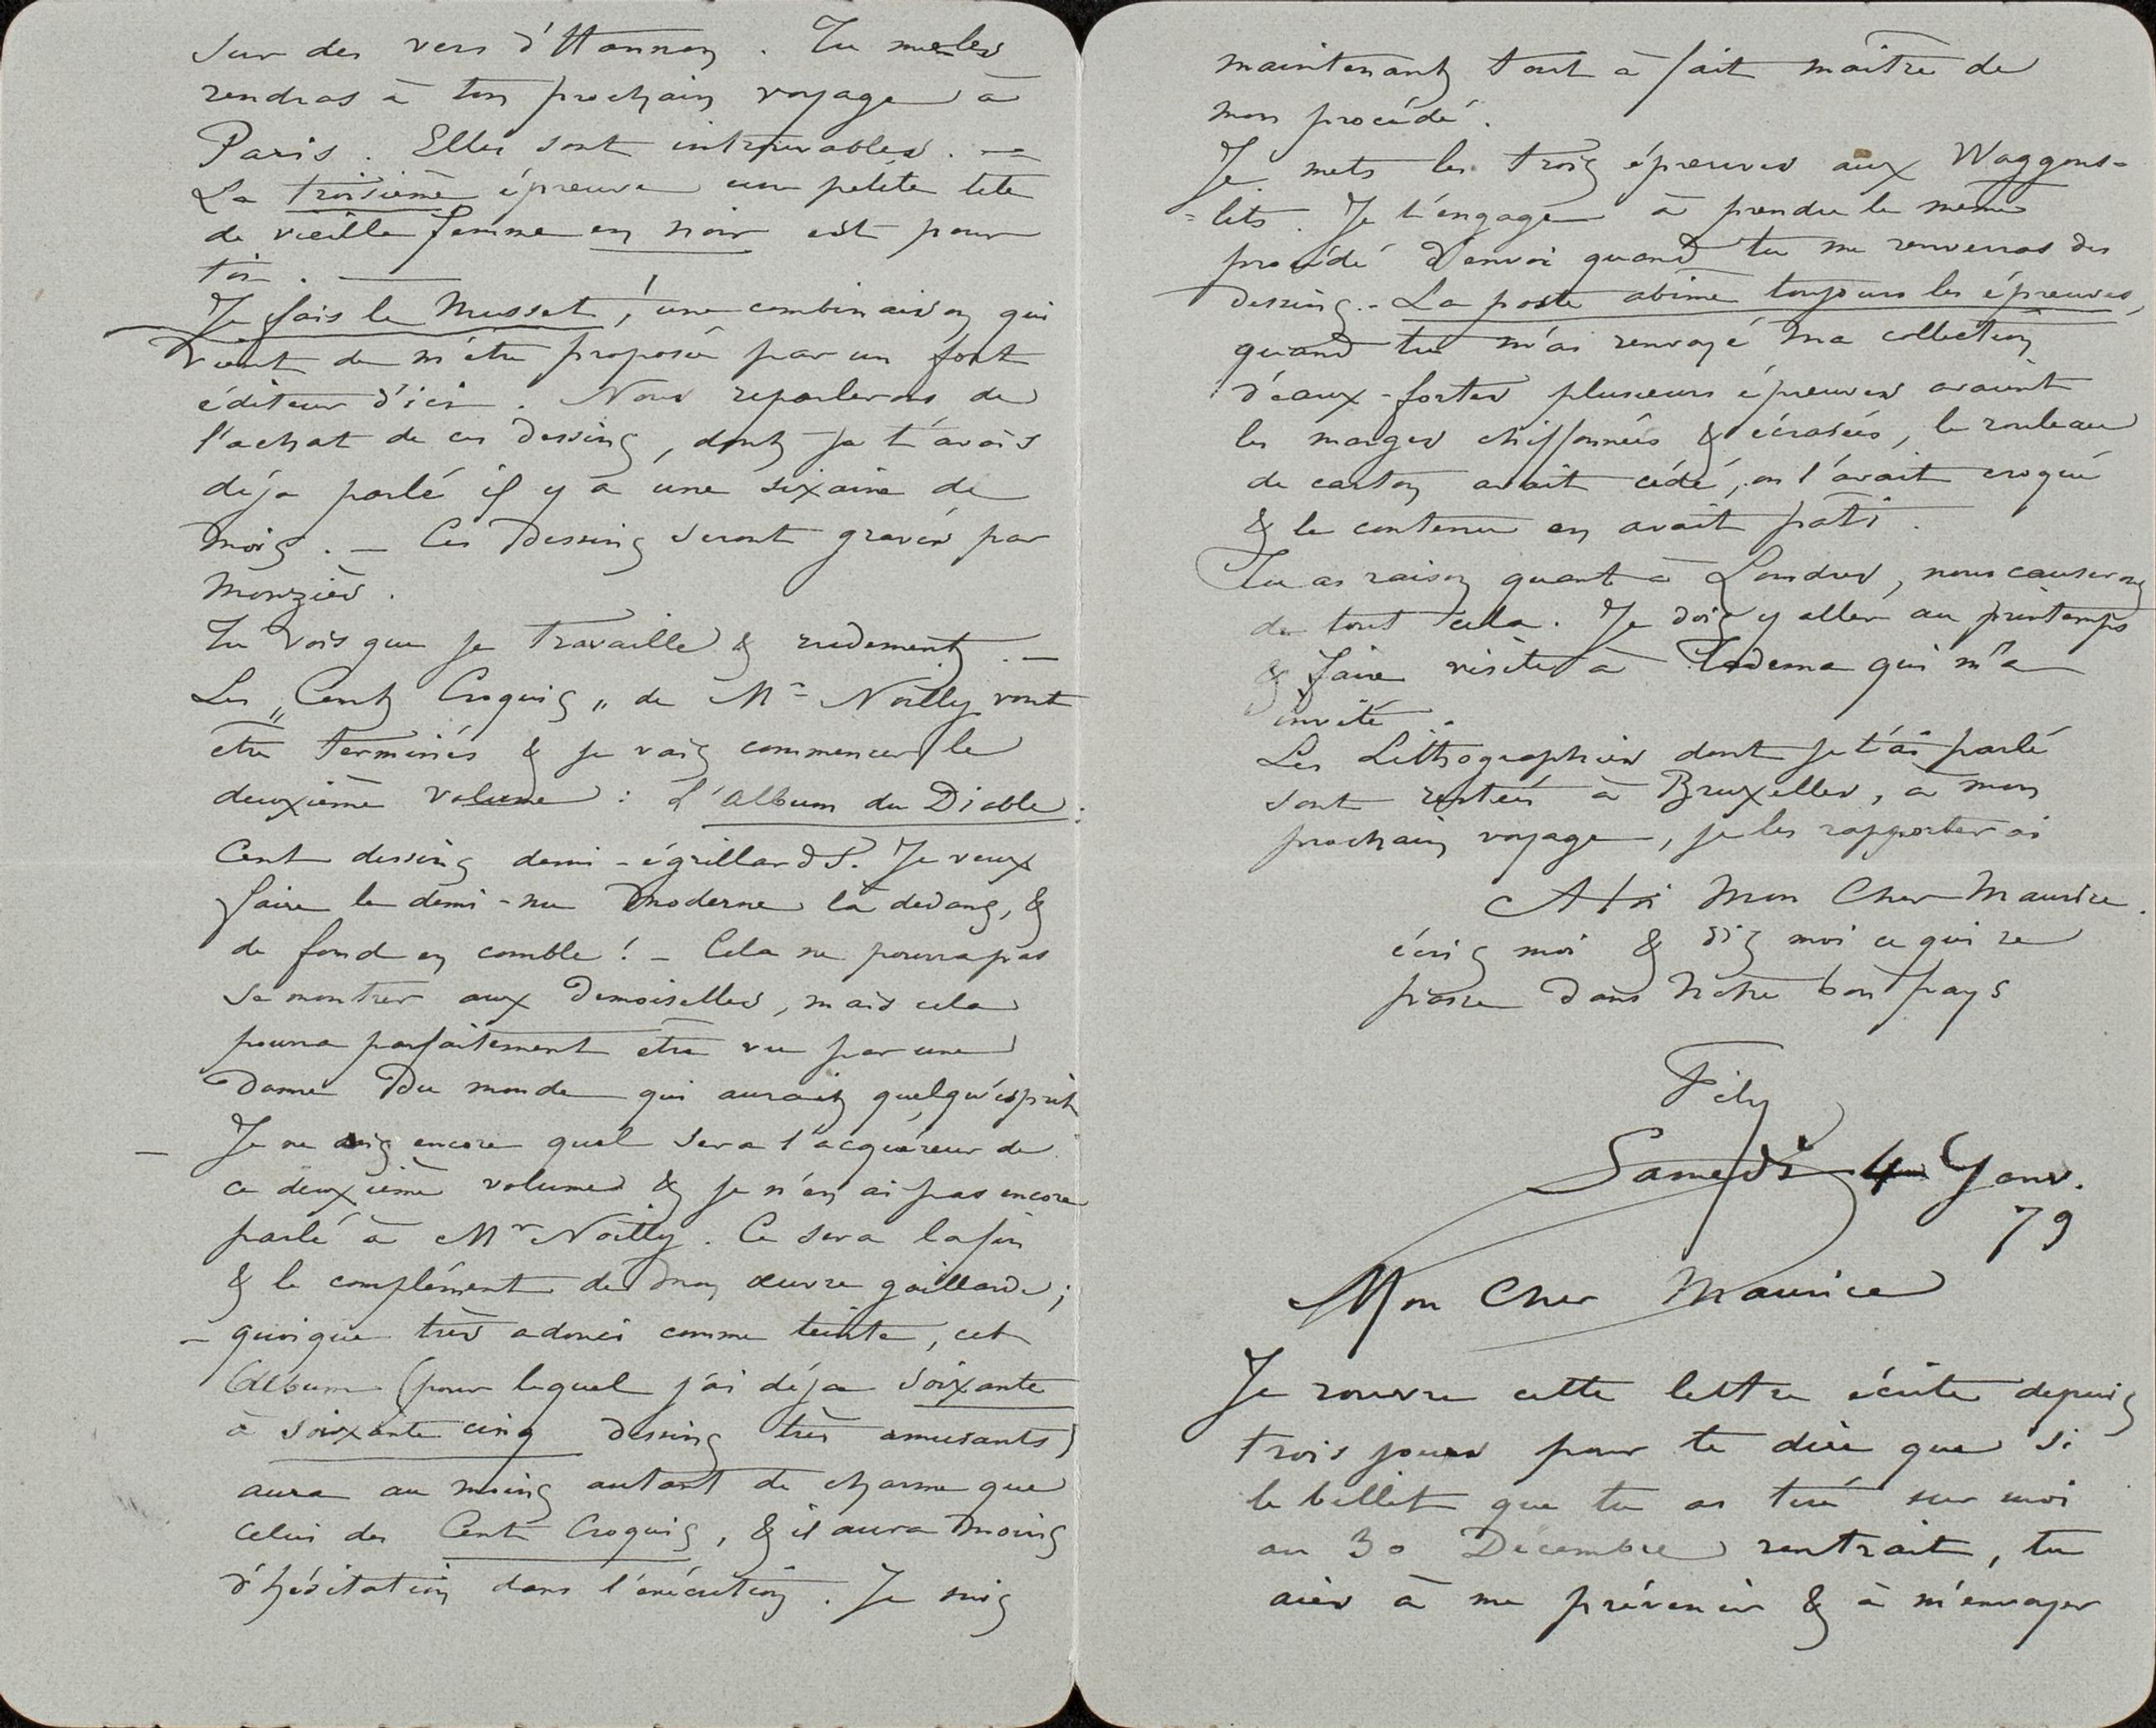 sur des vers d'Hannon. Tu me les
rendras à ton prochain voyage à
Paris. Elles sont introuvables. —
La troisième épreuve une petite tête
de vieille femme en noir est pour
toi. —
Je fais le Musset, ! une combinaison qui
vient de m'être proposée par un fort
éditeur d'ici. Nous reparlerons de
l'achat de ces dessins, dont je t'avais
déja parlé il y a une sixaine de
mois. — Ces dessins seront gravés par
Monziès.
Tu vois que je travaille & rudement. —
Les „Cent Croquis„ de Mr Noilly vont
être terminés & je vais commencer le
deuxième volume : L'album du Diable :
Cent dessins demi-égrillards. Je veux
faire le demi-nu moderne là dedans, &
de fond en comble ! — Cela ne pourra pas
se montrer aux demoiselles, mais cela
pourra parfaitement être vu par une
Dame du monde qui aurait quelqu'esprit
— Je ne sais encore quel sera l'acquéreur de
ce deuxième volume & je n'en ai pas encore
parlé à Mr Noilly. Ce sera la fin
& le complément de mon œuvre gaillarde ;
— quoique très adouci comme teinte, cet
Album (pour lequel j'ai déja soixante
à soixante cinq dessins très amusants)
aura au moins autant de charme que
celui des Cent Croquis, & il aura moins
d'hésitation dans l'exécution. Je suis
maintenant tout à fait maître de
mon procédé.
Je mets les trois épreuves aux Waggons-
-lits. Je t'engage à prendre le même
procédé d'envoi quand tu me renverras des
dessins. - La poste abime toujours les épreuves,
quand tu m'as renvoyé ma collection
d'eaux-fortes plusieurs épreuves avaient
les marges chiffonnées & écrasées, le rouleau
de carton avait cédé, on l'avait croqué
& le contenu en avait pati.
Tu as raison quant à Londres, nous causerons
de tout cela. Je dois y aller au printemps
& faire visite à Tadema qui m'a
invité.
Les Lithographies dont je t'ai parlé
sont restées à Bruxelles, à mon
prochain voyage, je les rapporterai
A toi Mon Cher Maurice.
écris moi & dis moi ce qui se
passe dans notre bon pays
Fély
Samedi 4 Janv.
79
Mon Cher Maurice
Je rouvre cette lettre écrite depuis
trois jours pour te dire que si
le billet que tu as tiré sur moi
au 30 Décembre rentrait, tu
aies à me prévenir & à m'envoyer